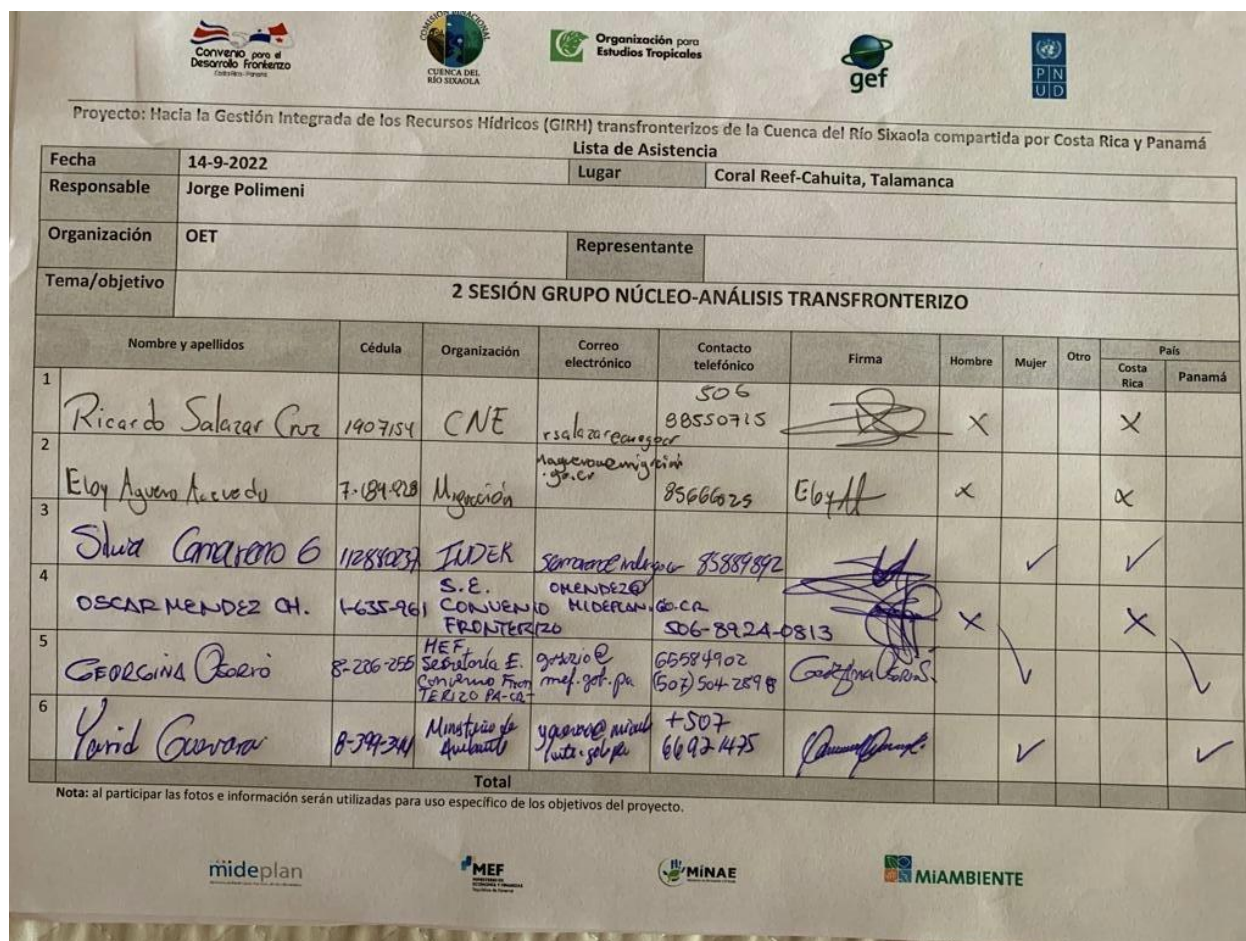 Convenio para el
Desarrollo Fronterizo
Costa Rica - Panamá
COMISIÓN BINACIONAL
CUENCA DEL
RÍO SIXAOLA
Organización para
Estudios Tropicales
gef
P N
U D
Proyecto: Hacia la Gestión Integrada de los Recursos Hídricos (GIRH) transfronterizos de la Cuenca del Río Sixaola compartida por Costa Rica y Panamá
Lista de Asistencia
Fecha 14-9-2022 Lugar Coral Reef-Cahuita, Talamanca
Responsable Jorge Polimeni
Organización OET Representante
Tema/objetivo 2 SESIÓN GRUPO NÚCLEO-ANÁLISIS TRANSFRONTERIZO
Nombre y apellidos Cédula Organización Correo electrónico Contacto telefónico Firma Hombre Mujer Otro País
Costa Rica Panamá
1 Ricardo Salazar Cruz 1907154 CNE 506 88550715 X X
2 Eloy Aguero Acevedo 7-189-928 Migración .go.cr 85666825 Eloy X X
3 Camareno G 112880237 INDER 85889892 ✓ ✓
4 OSCAR MENDEZ CH. 1-635-961 S.E. CONVENIO FRONTERIZO OMENDEZ@ MIDEPLAN.GO.CR 506-8924-0813 X X
5 GEORGINA Osorio 8-226-255 MEF Secretoría E. Convenio FronTERIZO PA-CR gosorio@ mef.gob.pa 65584902 (507) 504-2898 Georgina Osorio. ✓ ✓
6 Yarid Guevara 8-399-344 Ministerio de Ambiente +507 66921475 ✓ ✓
Total
Nota: al participar las fotos e información serán utilizadas para uso específico de los objetivos del proyecto.
mideplan
MEF
MINISTERIO DE
ECONOMÍA Y FINANZAS
MINAE
MiAMBIENTE